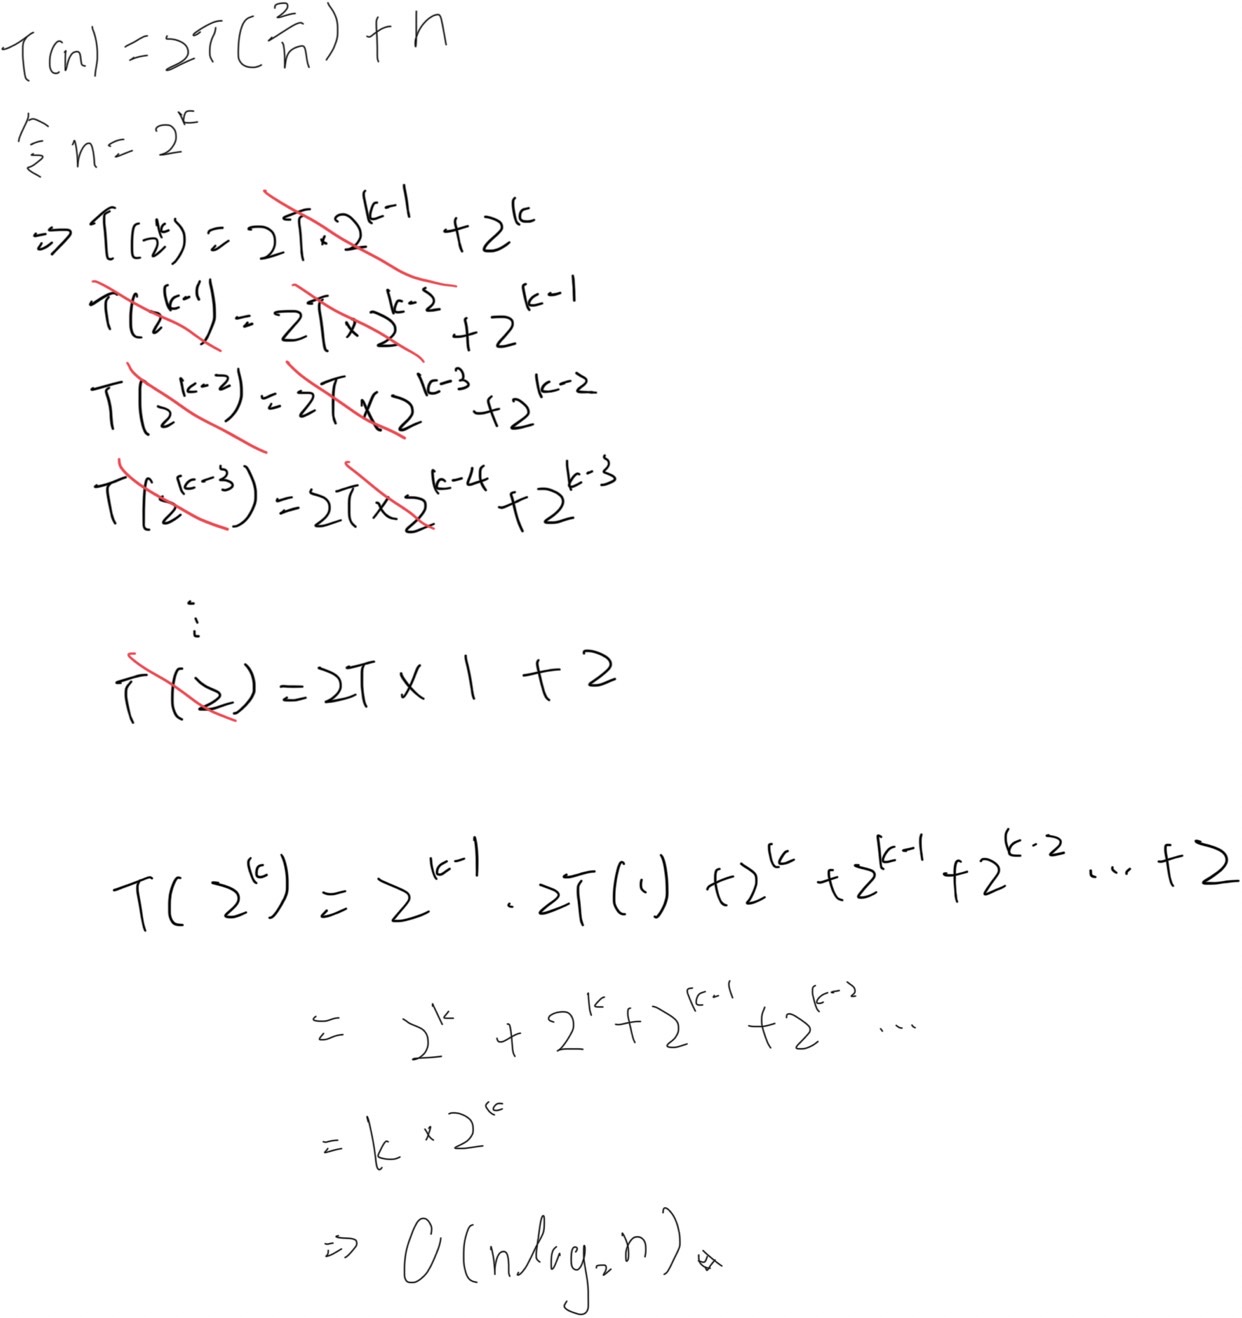 T(n) = 2T(2/n) + n
令 n = 2^k
⇒ T(2^k) = 2T·2^{k-1} + 2^k
T(2^{k-1}) = 2T×2^{k-2} + 2^{k-1}
T(2^{k-2}) = 2T×2^{k-3} + 2^{k-2}
T(2^{k-3}) = 2T×2^{k-4} + 2^{k-3}
⋮
T(2) = 2T × 1 + 2
T(2^k) = 2^{k-1} · 2T(1) + 2^k + 2^{k-1} + 2^{k-2} ... + 2
= 2^k + 2^k + 2^{k-1} + 2^{k-2} ...
= k × 2^k
⇒ O(n log₂ n)